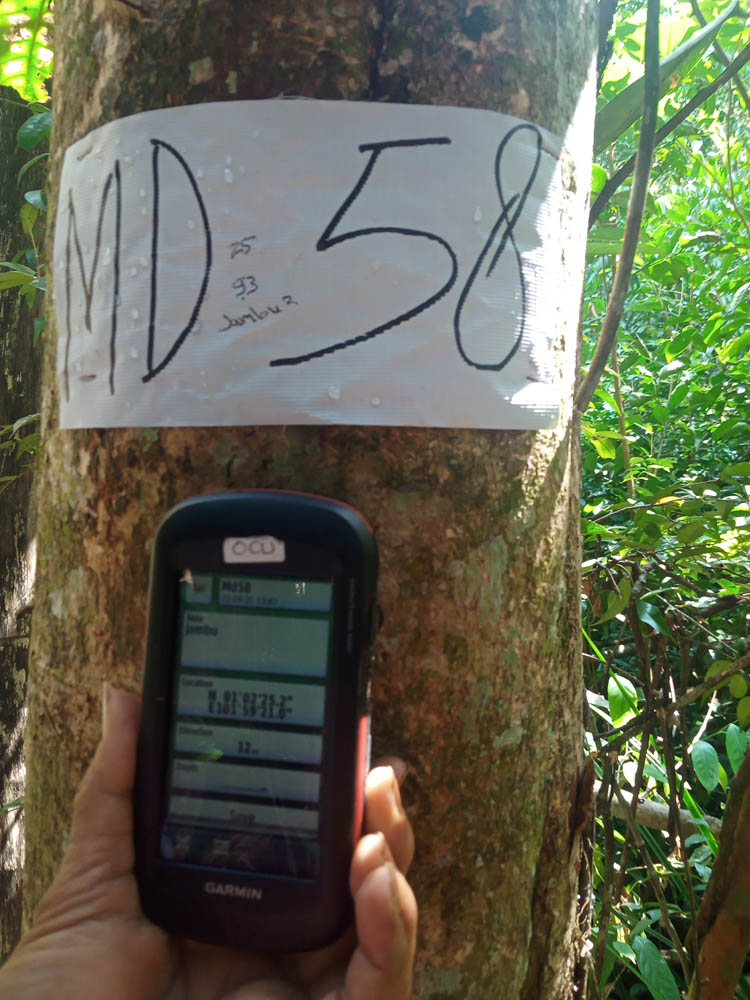 MD 58
25
93
Jambu2
OCU
Md58
Note
Jambu
Location
N 01°02'25.2"
E101°59'21.0"
Elevation
12m
Depth
Save
GARMIN